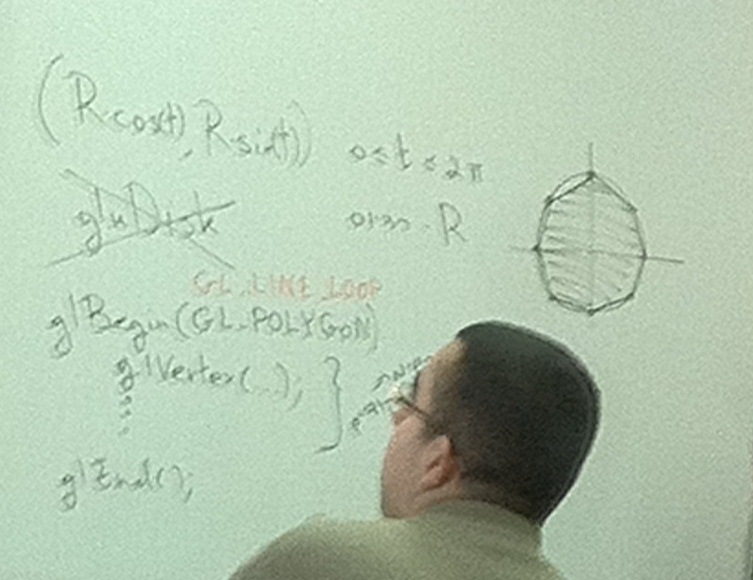 (R cos(t), R sin(t)) 0 ≤ t ≤ 2π
gluDisk רדיוס - R
GL_LINE_LOOP
glBegin(GL_POLYGON)
glVertex(...); }
glEnd();